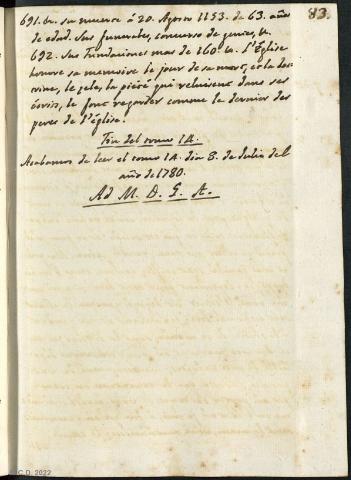 83.
691. &c. su muerte á 20. Agosto 1153. de 63. años
de edad. Sus funerales, concurso de gentes, &c.
692. Sus fundaciones mas de 160. &c. L'Eglise
honore sa memoire le jour de sa mort, et la doc-
trine, le zele, la piété qui reluisent dans ses
écrits, le font regarder comme le dernier des
peres de l'Église.
Fin del tomo 14.
Acabamos de leer el tomo 14. dia 8. de Julio del
año de 1780.
Ad M. D. G. A.
C.D. 2022